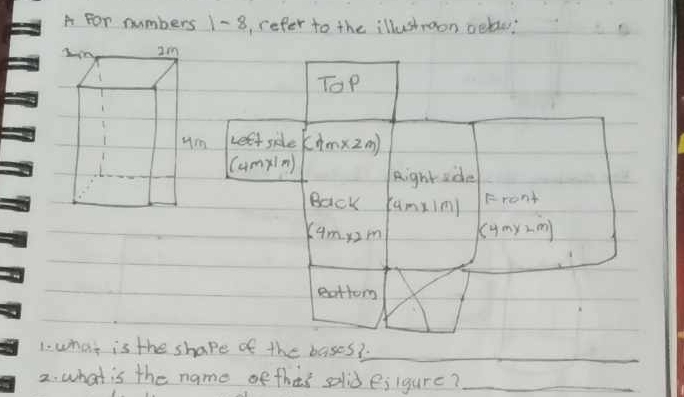 A For numbers 1-8, refer to the illustraon below:
2m
TOP
4m
Left side
(4m x 1m)
(1m x 2m)
Right side
(4m x 1m)
Back
(4m x 2m
Front
(4m x 2m)
Bottom
1. what is the shape of the bases?.
2. what is the name of this solid figure?